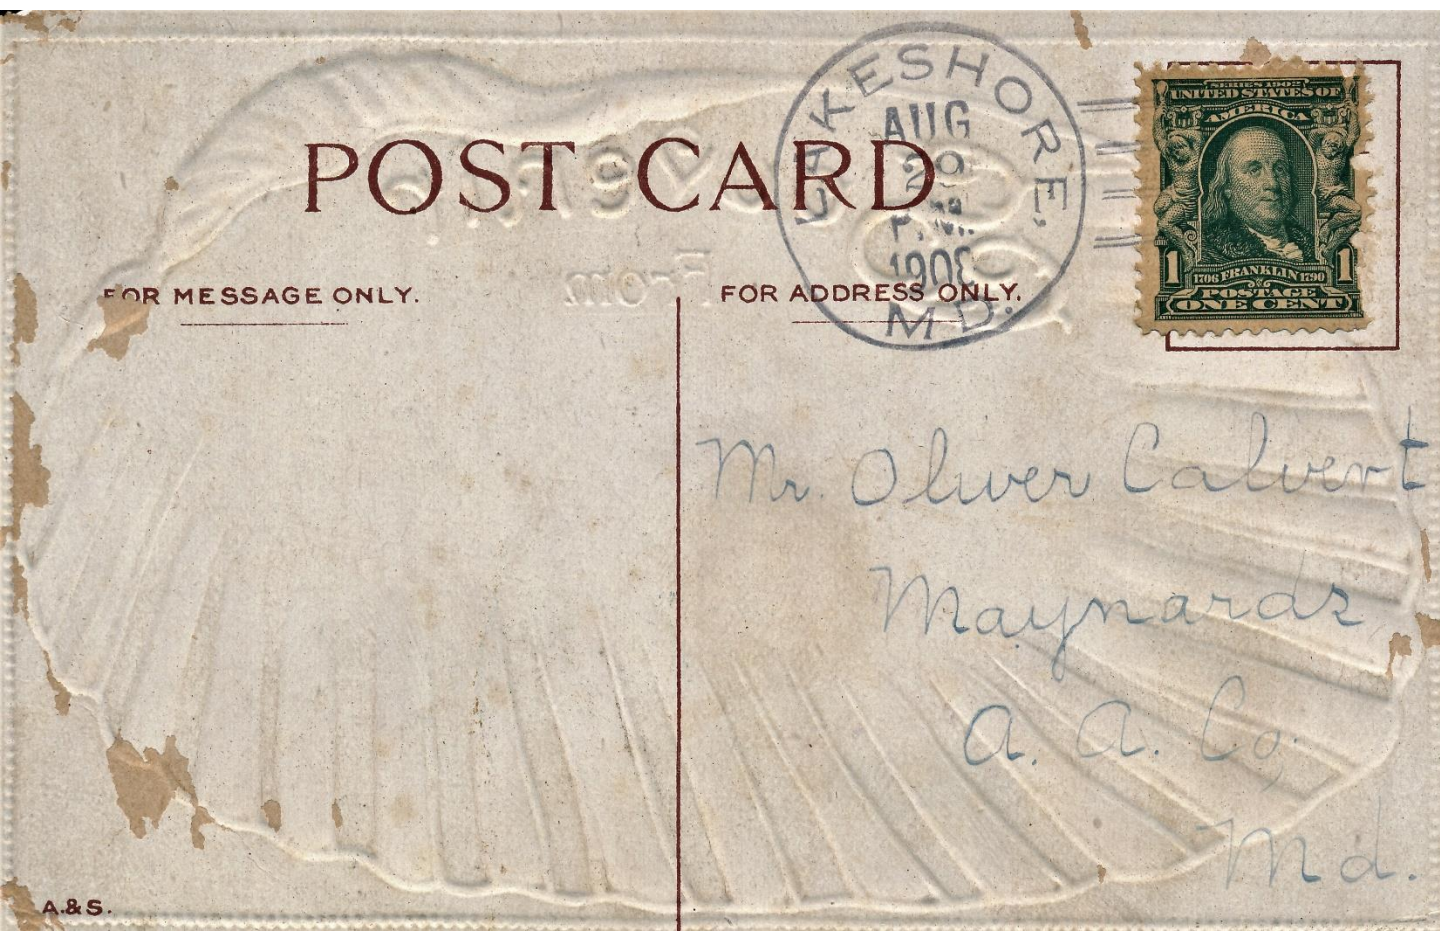 POST CARD
FOR MESSAGE ONLY.
FOR ADDRESS ONLY.
LAKESHORE,
AUG
29
P.M.
1908
MD.
SERIES 1902
UNITED STATES OF
AMERICA
1706 FRANKLIN 1790
1 1
POSTAGE
ONE CENT
Mr. Oliver Calvert
Maynards,
A. A. Co.
Md.
From
A.&S.